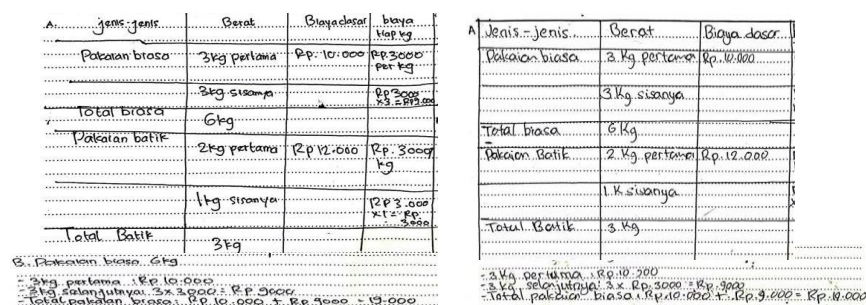 A. jenis-jenis Berat Biaya dasar biaya tiap kg
Pakaian biasa 3kg pertama Rp. 10.000 Rp.3000 per kg
3kg sisanya Rp 3000 x3 = Rp9.000
Total biasa 6kg
Pakaian batik 2kg pertama Rp 12.000 Rp. 3000/ kg
1kg sisanya Rp 3.000 x1 = Rp. 3.000
Total Batik 3kg
B. Pakaian biasa 6kg
- 3kg pertama : Rp 10.000
- 3kg selanjutnya: 3x 3.000 = Rp 9000
- Total pakaian biasa : Rp 10.000 + Rp 9000 = 19.000
A Jenis-jenis Berat Biaya dasar
Pakaian biasa 3 Kg pertama Rp. 10.000
3 Kg sisanya
Total biasa 6 Kg
Pakaian Batik 2 Kg pertama Rp. 12.000
1 K sisanya
Total Batik 3 Kg
- 3 Kg pertama : Rp.10.000
- 3 Kg selanjutnya 3 x Rp.3000 = Rp.9000
- Total pakaian biasa : Rp.10.000 + Rp.9.000 = Rp.19.000